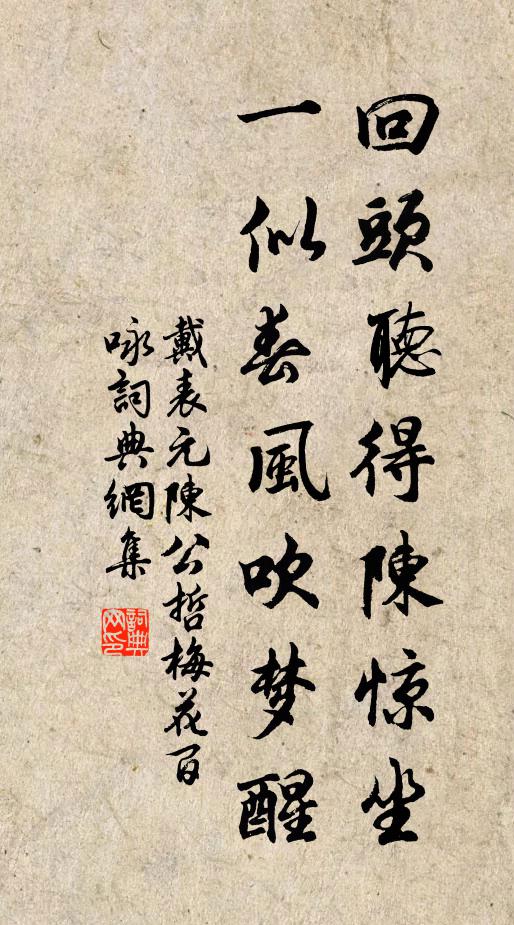 回頭聽得陳惊坐
一似春風吹梦醒
戴表元陳公哲梅花百
咏詞典網集
詞典网印